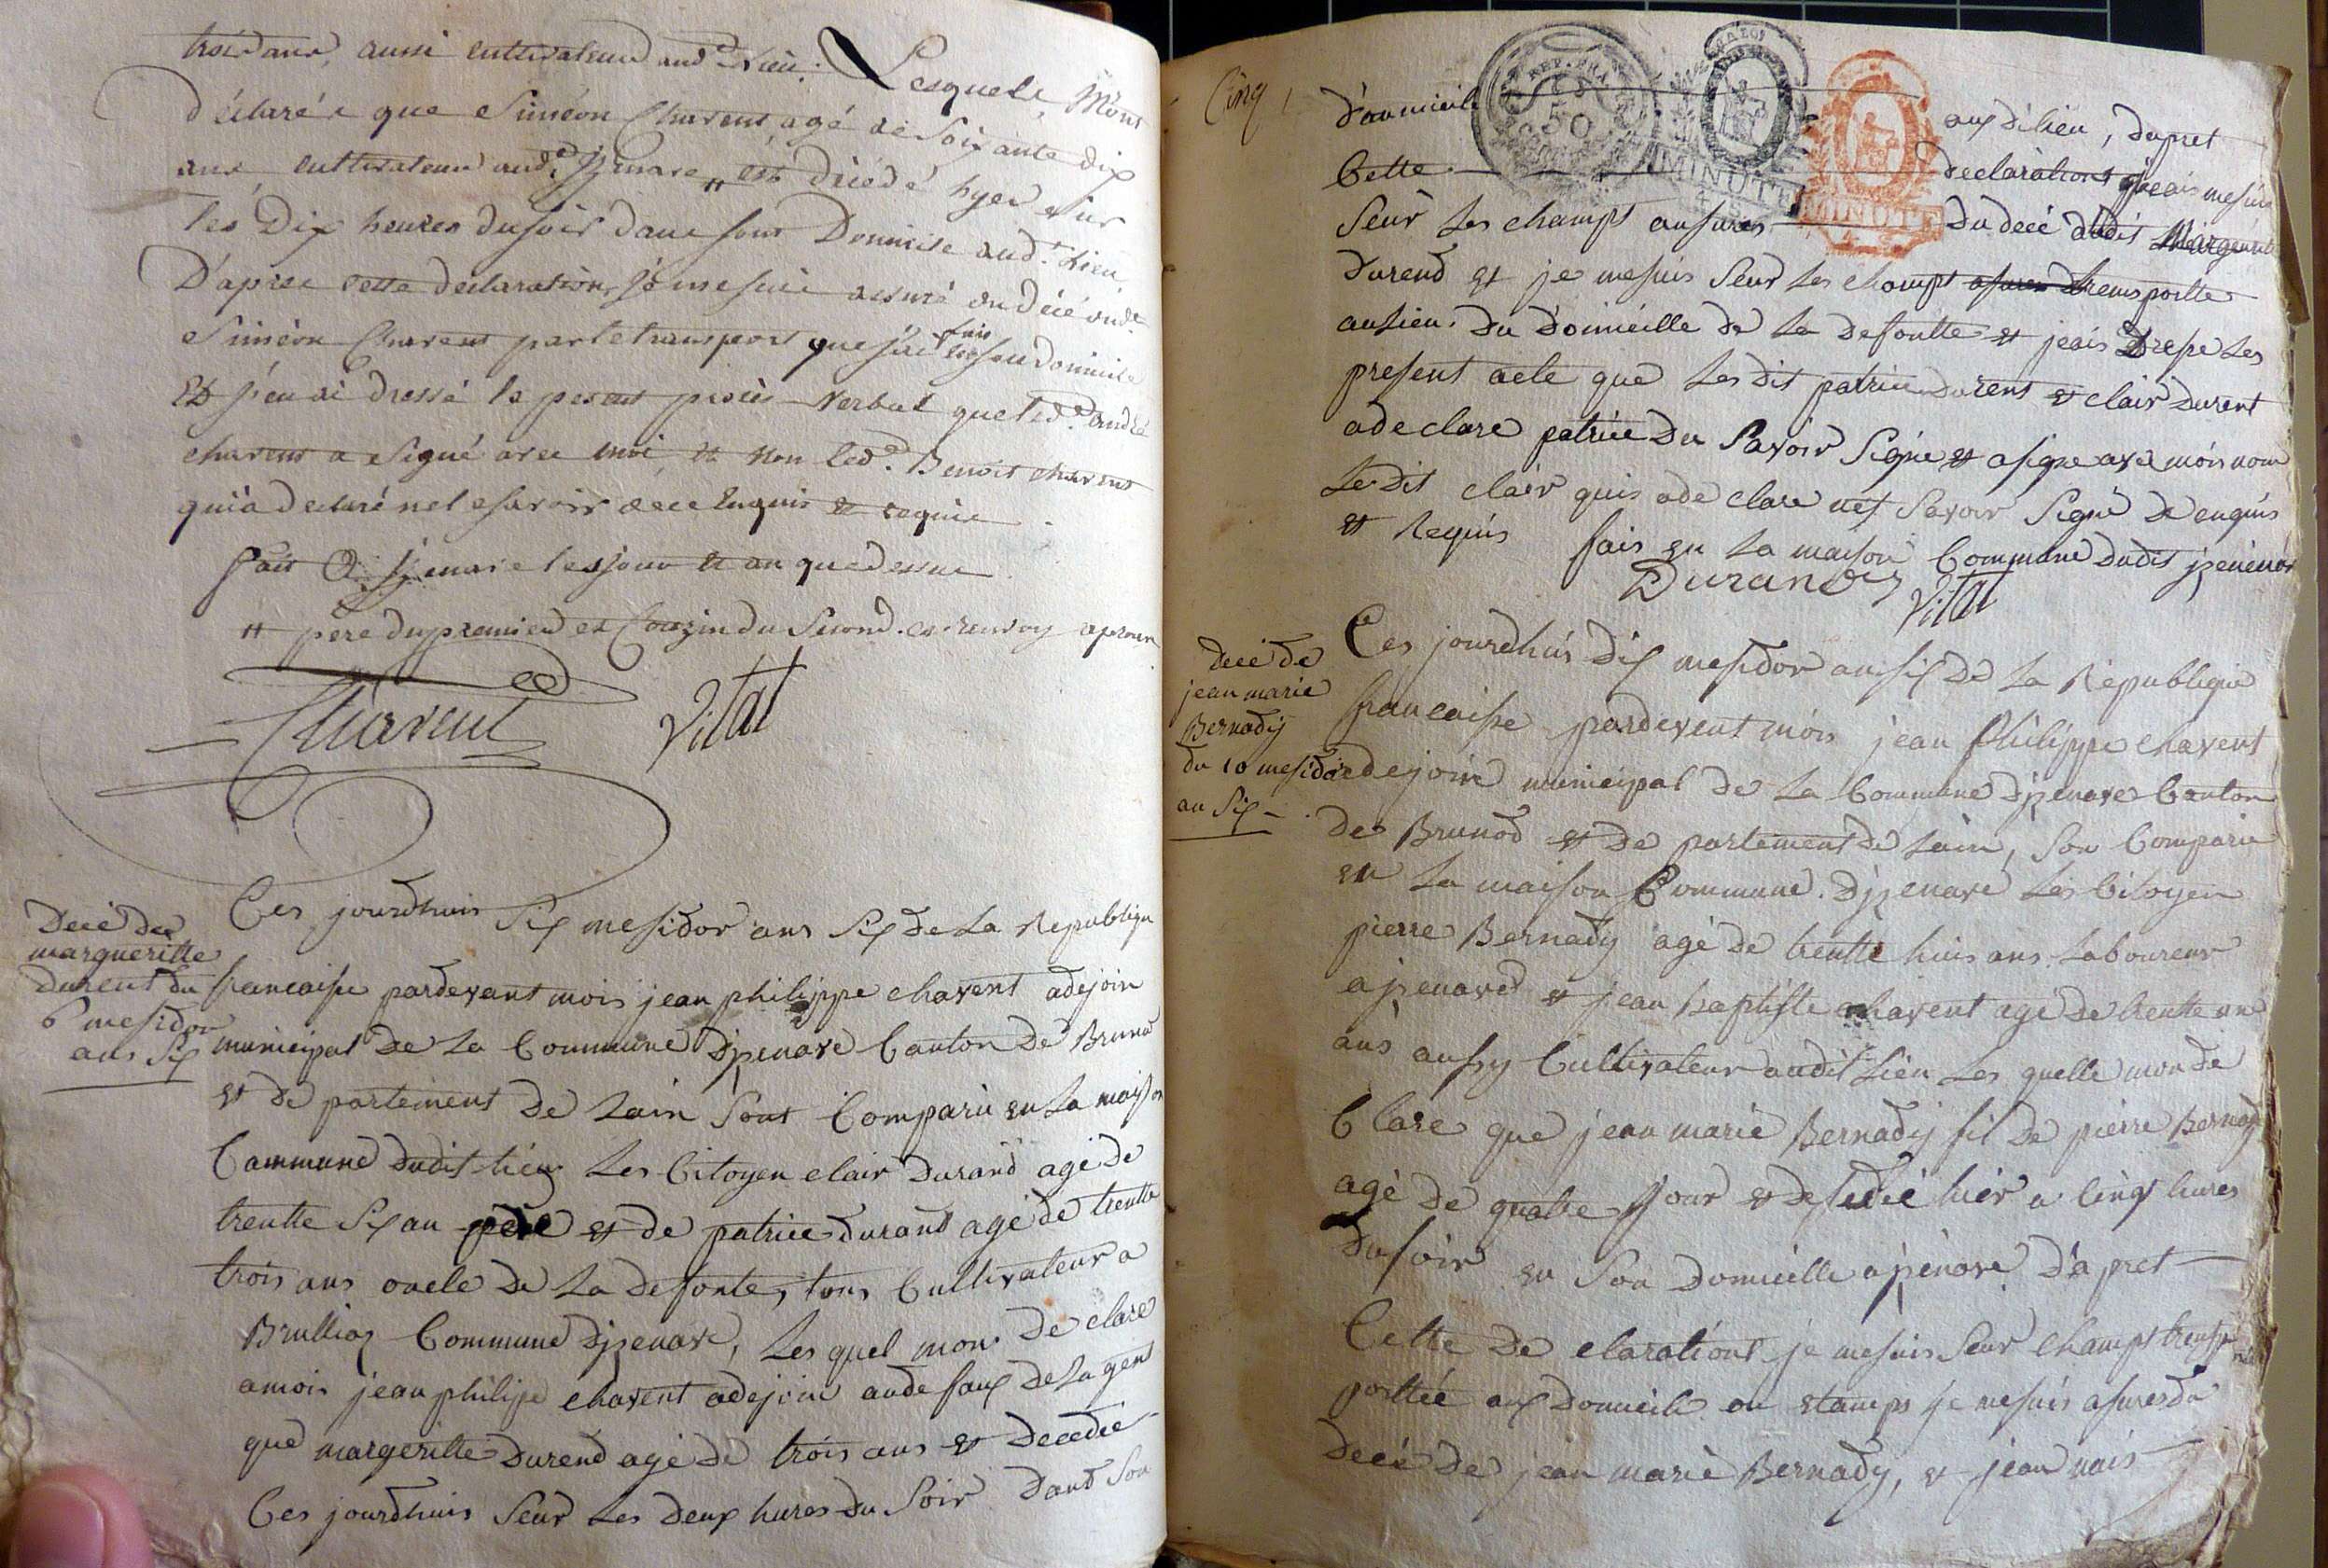 trois ans, aussi cultivateur aud. lieu. Lesquels, M'ont
déclaré que Siméon Chavent agé de Soixante dix
ans cultivateur aud. Izenave # est décédé hyer sur
les Dix heures du soir dans son Domicile aud. Lieu
D'après cette declaration, je me suis assuré du décé dud.
Siméon Chavent par le transport que j'ai fais en son domicile
Et j'en ai dressé le present procès-Verbal que led. André
chavent a Signé avec moi, et non led. Benoit chavent
qui a declaré ne le savoir de ce Enquis et requis
fait à Izenave les jour et an que dessus
# père du premier et Couzin du Second. ce renvoy aprouvé
Chavent Vital
Decé de
margueritte
Durent du
6 mesidor
ans Six
Ces jourdhuis Six mesidor ans Six de La Republiqu
francaisse pardevant mois jean philippe chavent adejoin
municipal de La Commune dizenave Canton de Brunod
et de partement de Lain Sont Comparu en La maison
Commune dudit lieu Les Citoyen clair Durand agé de
trentte Six an pere et de patrice durand agé de trentte
trois ans oncle de La defonte, tous Cultivateur a
Brullioz Commune dizenave, Les quel mon de clare
amois jean philipe chavent adejoin au defaux de Lagent
que margeritte Durend agé de trois ans et decedée
Ces jourdhuis Seur Les deux hures du Soir dans Son
Cinq
domicile aux dilieu, dapret
REP. FRA.
50
MINUTE
LA LOI
MINUTE
Cette declarations je me suis
Seur Les champs ansures du decé dudit Margeurite
durend et je me suis Seur Les champs trensportte
au lieu du domicille de La defontte et jeais drese Les
present acte que Les dit patrice durent et clair durent
a declare patrice du Savoir Signe et a signe ave mois nom
Le dit clair quis a de clare net Savoir Signé de enquis
et Requis fais en La maison Commune dudit izenave
Durand Vital
decé de
jean marie
Bernady
du 10 mesidor
an Six
Ces jourdhuis dix mesidor an six de La Republique
francaisse pardevent mois jean philippe chavent
adejoin municipal de La Commune dizenave Canton
de Brunod et de partement de Lain, Son Comparu
en La maison Commune dizenave Les Citoyen
pierre Bernady agé de trentte huis ans Laboureur
a izenaved et jean baptiste chavent agé de trentte un
ans aussy Cultivateur audit Lieu Les quelle mon de
Clare que jean marie Bernady fil de pierre Bernady
agé de quatre jour et desedée hier a Cinqt hures
du soir en Son domicille a izenave d'apret
Cette de clarations je me suis Seur champs trensp
porttée aux domicile ou etamps je me suis asures du
decé de jean marie Bernady, et jean nais